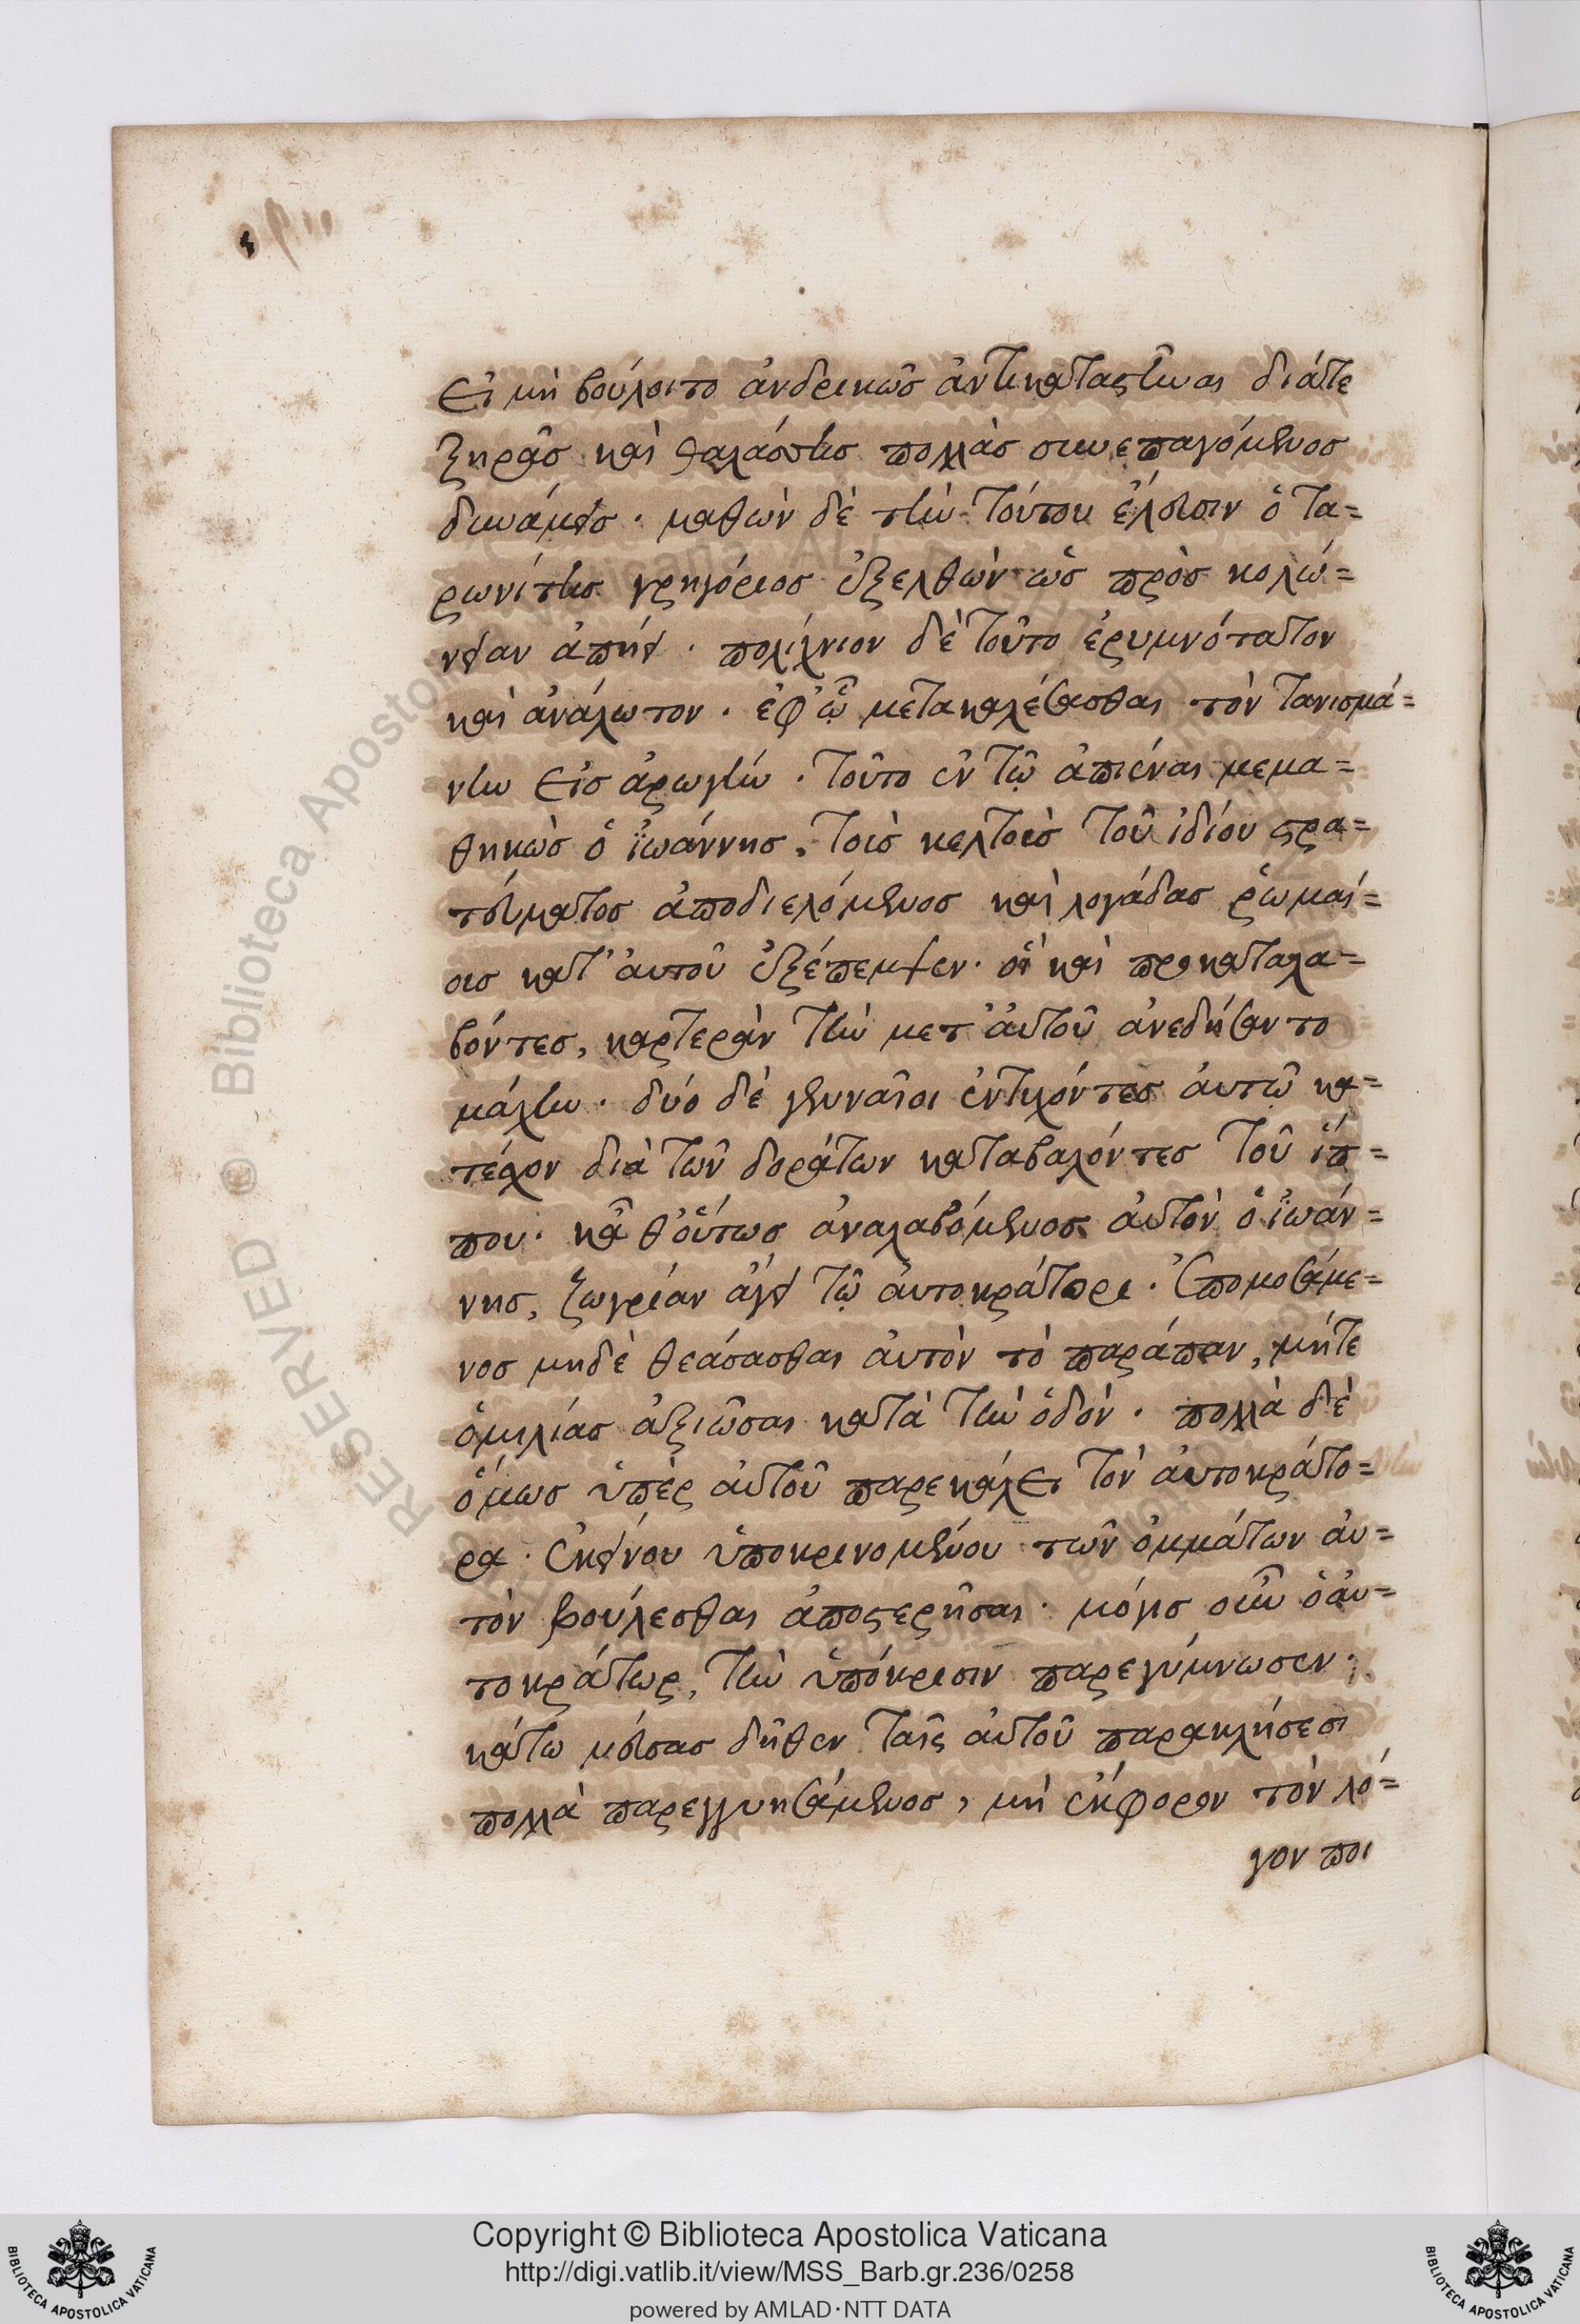 εἰ μὴ βούλοιτο ἀνδρικῶς ἀντικαταστῆναι διάτε
ξηρᾶς καὶ θαλάσσης πολλὰς συνεπαγόμενος
δυνάμεις· μαθὼν δὲ τὴν τούτου ἔλευσιν ὁ Τα=
ρωνίτης γρηγόριος ἐξελθὼν ὡς πρὸς κολώ=
νειαν ἀπῄει· πολίχνιον δὲ τοῦτο ἐρυμνότατον
καὶ ἀνάλωτον· ἐφ' ᾧ μετακαλέσασθαι τὸν τανισμά=
νην εἰς ἀρωγήν· τοῦτο ἐν τῷ ἀπιέναι μεμα=
θηκὼς ὁ ἰωάννης, τοὺς κελτοὺς τοῦ ἰδίου στρα=
τεύματος ἀποδιελόμενος καὶ λογάδας ῥωμαί=
ους κατ' αὐτοῦ ἐξέπεμψεν· οἳ καὶ προκαταλα=
βόντες, καρτερὰν τὴν μετ' αὐτοῦ ἀνεδήσαντο
μάχην· δύο δὲ γενναῖοι ἐντυχόντες αὐτῷ κα=
τέσχον διὰ τῶν δοράτων καταβαλόντες τοῦ ἵπ=
που· κᾆθ' οὕτως ἀναλαβόμενος αὐτὸν ὁ ἰωάν=
νης, ζωγρίαν ἄγει τῷ αὐτοκράτορι· ἐπομοσάμε=
νος μηδὲ θεάσασθαι αὐτὸν τὸ παράπαν, μήτε
ὁμιλίας ἀξιῶσαι κατὰ τὴν ὁδόν· πολλὰ δὲ
ὅμως ὑπὲρ αὐτοῦ παρεκάλει τὸν αὐτοκράτο=
ρα· ἐκείνου ὑποκρινομένου τῶν ὀμμάτων αὐ=
τὸν βούλεσθαι ἀποστερῆσαι· μόγις οὖν ὁ αὐ=
τοκράτωρ, τὴν ὑπόκρισιν παρεγύμνωσεν·
κάτω νεύσας δῆθεν ταῖς αὐτοῦ παρακλήσεσι
πολλὰ παρεγγυησάμενος, μὴ ἔκφορον τὸν λό=
γον ποι
Copyright © Biblioteca Apostolica Vaticana
http://digi.vatlib.it/view/MSS_Barb.gr.236/0258
powered by AMLAD·NTT DATA
BIBLIOTECA APOSTOLICA VATICANA
BIBLIOTECA APOSTOLICA VATICANA